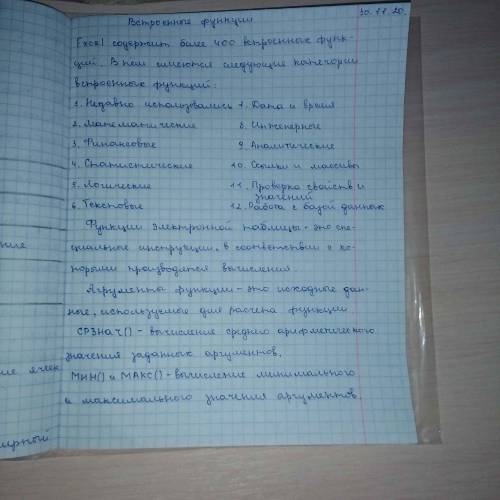 Встроенные функции 30.11.20
Excel содержит более 400 встроенных функ-
ций. В нем имеются следующие категории
встроенных функций:
1. Недавно использовались 7. Дата и время
2. Математические 8. Инженерные
3. Финансовые 9. Аналитические
4. Статистические 10. Ссылки и массивы
5. Логические 11. Проверка свойств и
значений
6. Текстовые 12. Работа с базой данных
Функции электронной таблицы - это спе-
циальные инструкции, в соответствии с ко-
торыми производятся вычисления.
Аргументы функции - это исходные дан-
ные, используемые для расчета функции.
СРЗНАЧ() - вычисление среднего арифметического
значения заданных аргументов.
МИН() и МАКС() - вычисление минимального
и максимального значения аргументов.
ние
ие ячеек
ирный